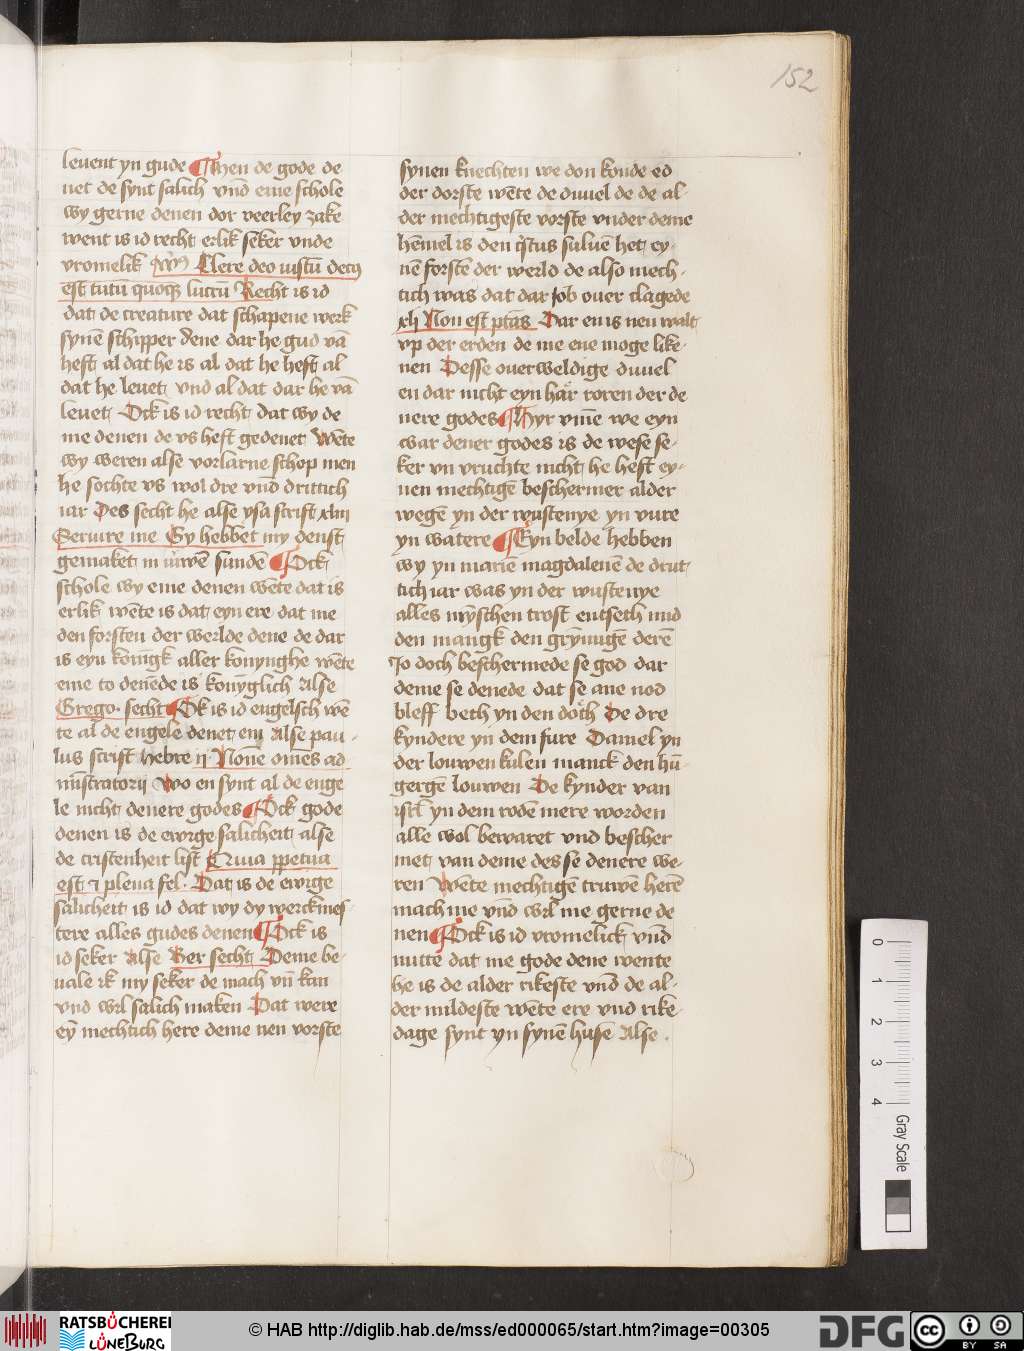 152
leuent yn gude ¶ Men de gode de
net de synt salich vnd eme schole
wy gerne denen dor veerley zake
went is id recht erlik seker vnde
vromelik Clere deo iustū decꝫ
est tutū quoqꝫ lucrū Recht is id
dat de creature dat schapene werk
synē schipper dene dar he gud vā
heft al dat he is al dat he heft al
dat he leuet vnd al dat dar he vā
leuet Ock is id recht dat wy de
me denen de vs heft gedenet Wēte
wy weren alse vorlarne schop men
he sochte vs wol dre vnd drittich
iar Des secht he alse ysa scrift xliii
Seruire me Gy hebbet my denst
gemaket in iuwē sundē ¶ Ock
schole wy eme denen wēte dat is
erlik wēte is dat eyn ere dat me
den forsten der werlde dene de dar
is eyn konīgk aller konynghe wēte
eme to denēde is konyglich Alse
Grego. secht ¶ Ok is id engelsch wē
te al de engele denet em Alse pau-
lus scrift hebre ii Nōne omēs ad
mīstratorii Wo en synt al de enge
le nicht denere godes ¶ Ock gode
denen is de ewige salicheit alse
de cristenheit list Cui ppetua
est ⁊ plena fel. Dat is de ewige
salicheit is id dat wy dy werckmes-
tere alles gudes denen ¶ Ock is
id seker Alse Ber secht Deme be-
uale ik my seker de mach vn kan
vnd wil salich maken Dat were
eȳ mechtich here deme nen vorste
synen knechten we don konde ed
der dorste wēte de duuel de de al-
der mechtigeste vorste vnder deme
hēmel is den cr̄stus suluē het ey-
nē forste der werld de also mech-
tich was dat dar Job ouer clagede
xli Non est ptās Dar en is nen walt
vp der erden de me ene moge like-
nen Desse ouerweldige duuel
en dar nicht eyn har roren der de
nere godes ¶ Hyr vmē we eyn
war dener godes is de wese se-
ker vn vruchte nicht he heft ey-
nen mechtigē beschermer alder
wegē yn der wustenye yn vure
yn watere ¶ Eyn belde hebben
wy yn marien magdalenē de drut
tich iar was yn der wustenye
alles mȳschen trost entseth mid
den mangk den grȳmigē derē
Jo doch beschermede se god dar
deme se denede dat se ane nod
bleff beth yn den doth De dre
kyndere yn dem fure Daniel yn
der louwen kulen manck den hū-
gergē louwen De kynder van
isrl yn dem rodē mere worden
alle wol bewaret vnd bescher
met van deme des se denere we-
ren Wēte mechtigē truwē herē
mach me vnd wil me gerne de
nen ¶ Ock is id vromelick vnd
nutte dat me gode dene wente
he is de alder rikeste vnd de al-
der mildeste wēte ere vnd rike-
dage synt yn synē huse Alse.
0
1
2
3
4
Gray Scale
RATSBÜCHEREI
LÜNEBURG
© HAB http://diglib.hab.de/mss/ed000065/start.htm?image=00305
DFG
cc
BY SA